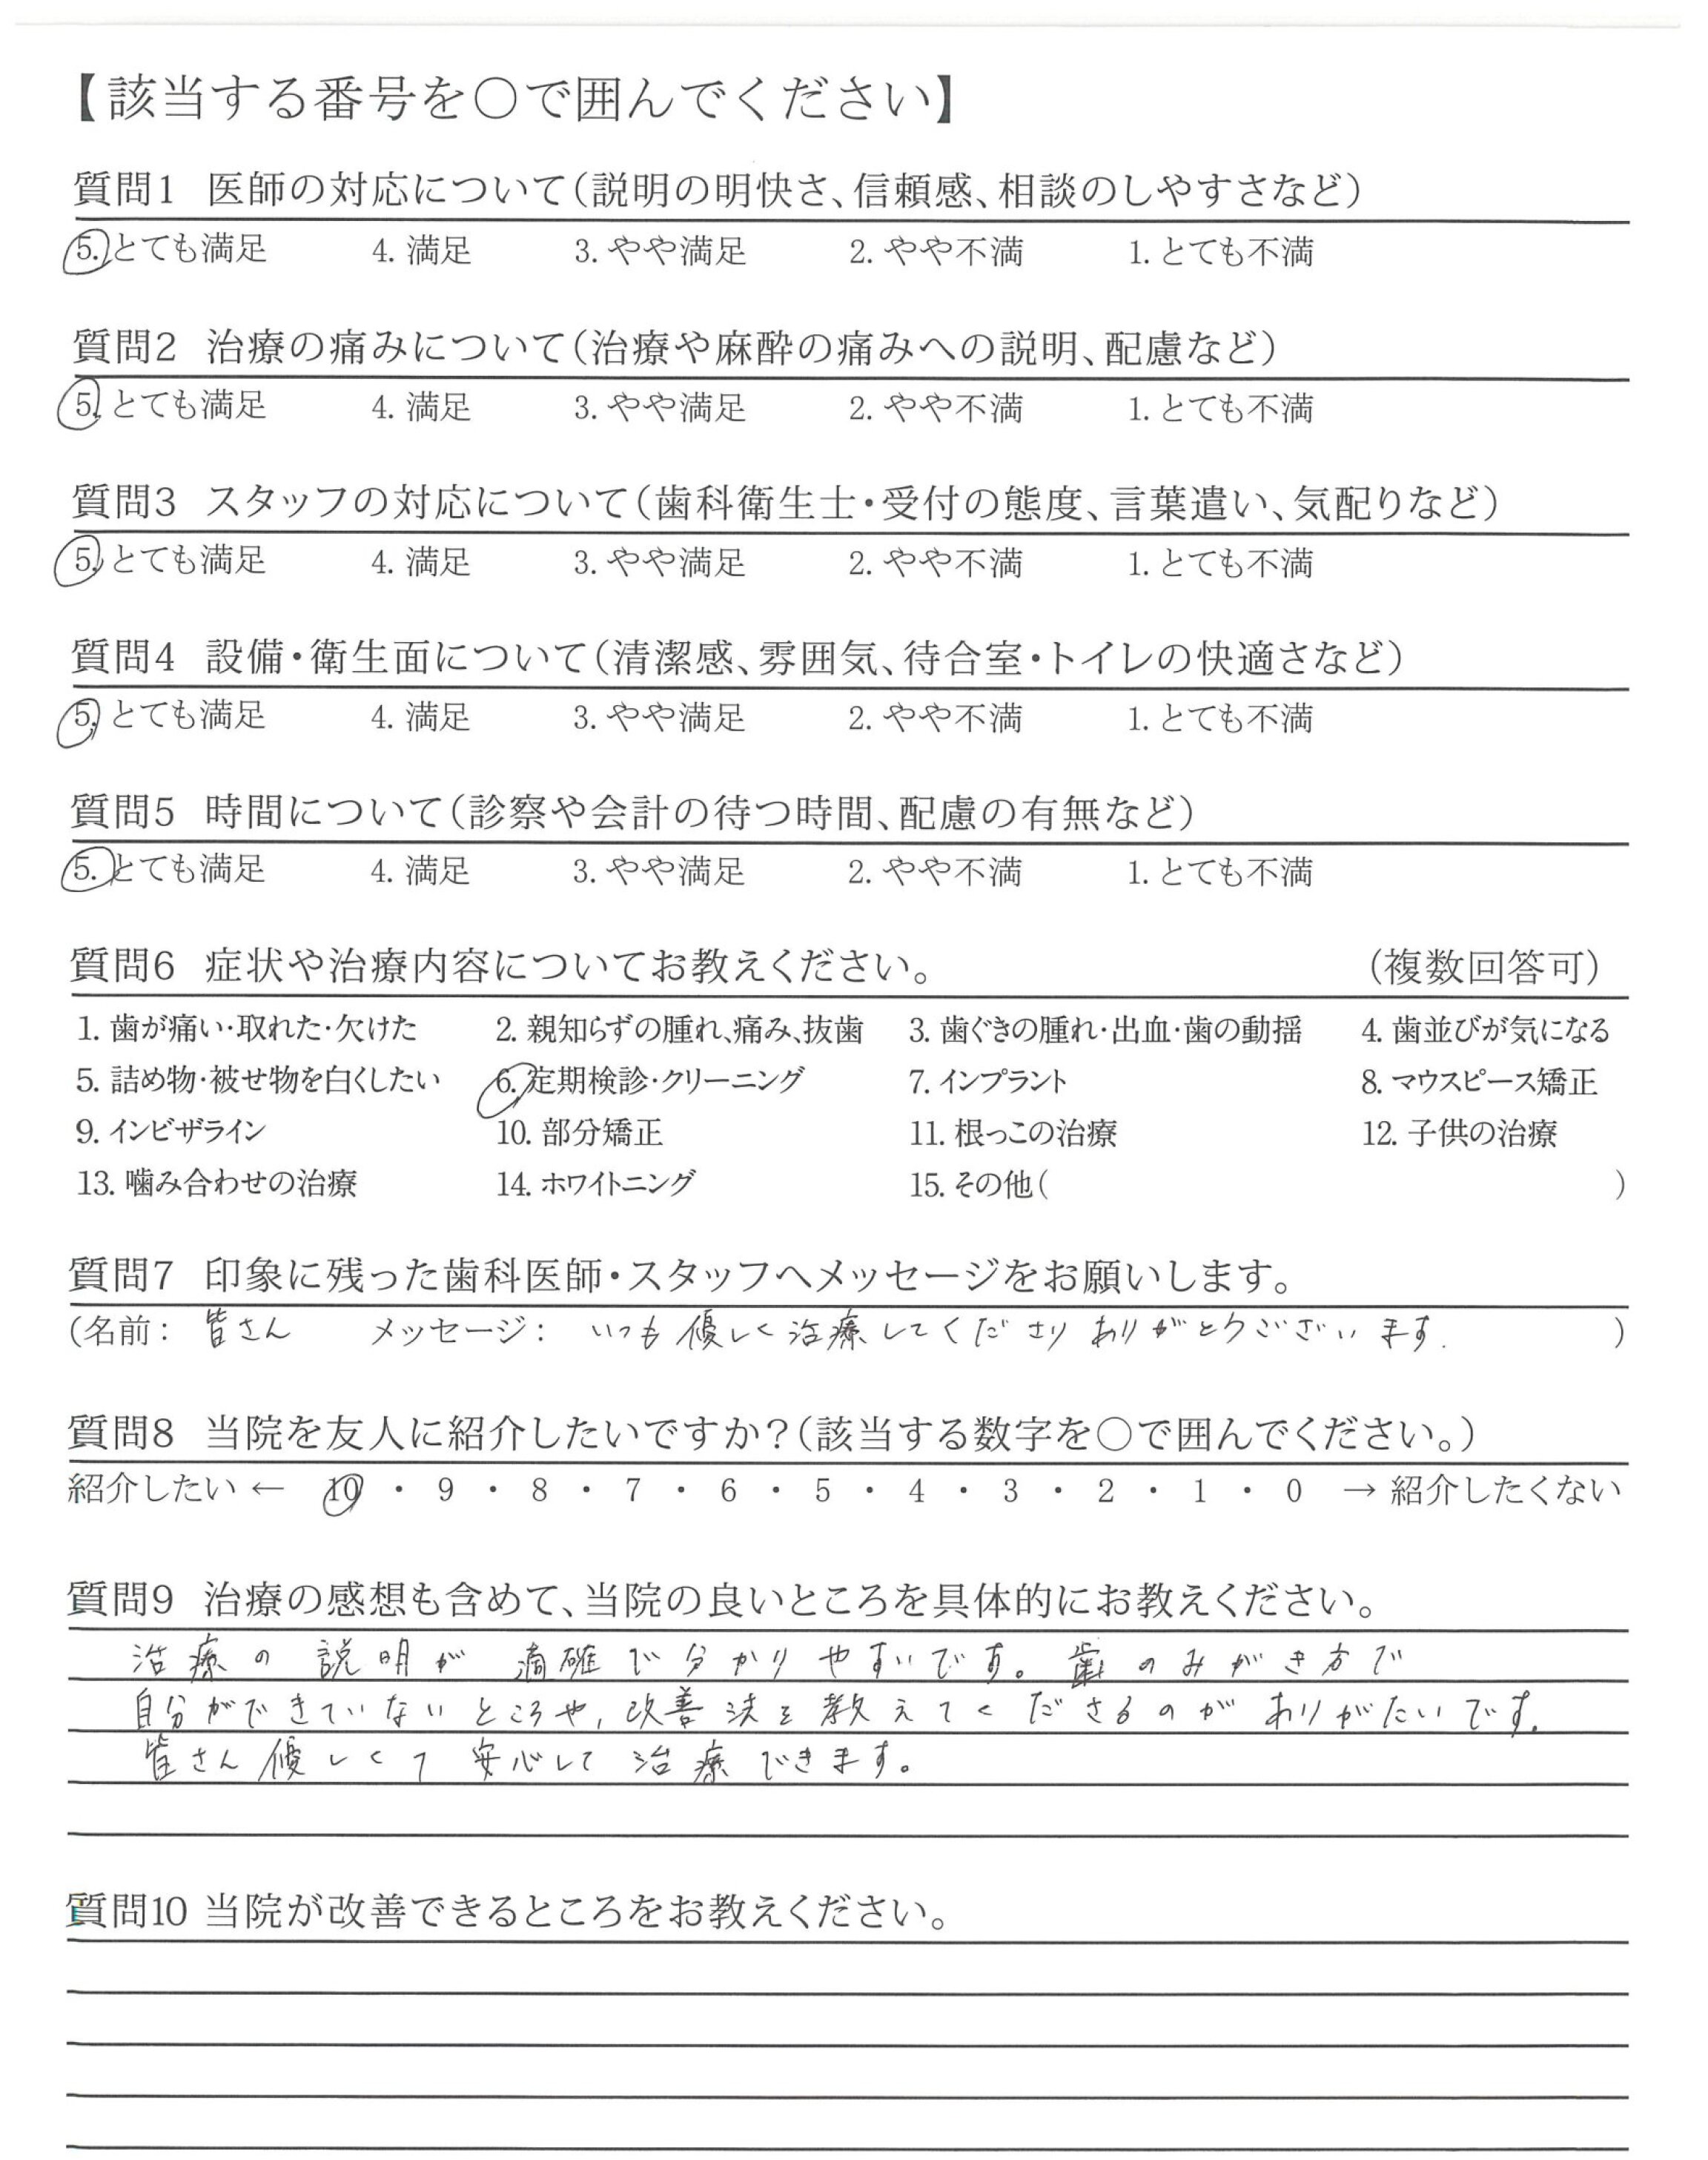 【該当する番号を○で囲んでください】
質問1 医師の対応について(説明の明快さ、信頼感、相談のしやすさなど)
5. とても満足 4. 満足 3. やや満足 2. やや不満 1. とても不満
質問2 治療の痛みについて(治療や麻酔の痛みへの説明、配慮など)
5. とても満足 4. 満足 3. やや満足 2. やや不満 1. とても不満
質問3 スタッフの対応について(歯科衛生士・受付の態度、言葉遣い、気配りなど)
5. とても満足 4. 満足 3. やや満足 2. やや不満 1. とても不満
質問4 設備・衛生面について(清潔感、雰囲気、待合室・トイレの快適さなど)
5. とても満足 4. 満足 3. やや満足 2. やや不満 1. とても不満
質問5 時間について(診察や会計の待つ時間、配慮の有無など)
5. とても満足 4. 満足 3. やや満足 2. やや不満 1. とても不満
質問6 症状や治療内容についてお教えください。 (複数回答可)
1. 歯が痛い・取れた・欠けた 2. 親知らずの腫れ、痛み、抜歯 3. 歯ぐきの腫れ・出血・歯の動揺 4. 歯並びが気になる
5. 詰め物・被せ物を白くしたい 6. 定期検診・クリーニング 7. インプラント 8. マウスピース矯正
9. インビザライン 10. 部分矯正 11. 根っこの治療 12. 子供の治療
13. 噛み合わせの治療 14. ホワイトニング 15. その他( )
質問7 印象に残った歯科医師・スタッフへメッセージをお願いします。
(名前: 皆さん メッセージ: いつも優しく治療してくださりありがとうございます. )
質問8 当院を友人に紹介したいですか?(該当する数字を○で囲んでください。)
紹介したい ← 10 ・ 9 ・ 8 ・ 7 ・ 6 ・ 5 ・ 4 ・ 3 ・ 2 ・ 1 ・ 0 → 紹介したくない
質問9 治療の感想も含めて、当院の良いところを具体的にお教えください。
治療の説明が 適確で分かりやすいです。歯のみがき方で
自分ができていないところや, 改善法を教えてくださるのがありがたいです.
皆さん優しくて安心して治療できます。
質問10 当院が改善できるところをお教えください。